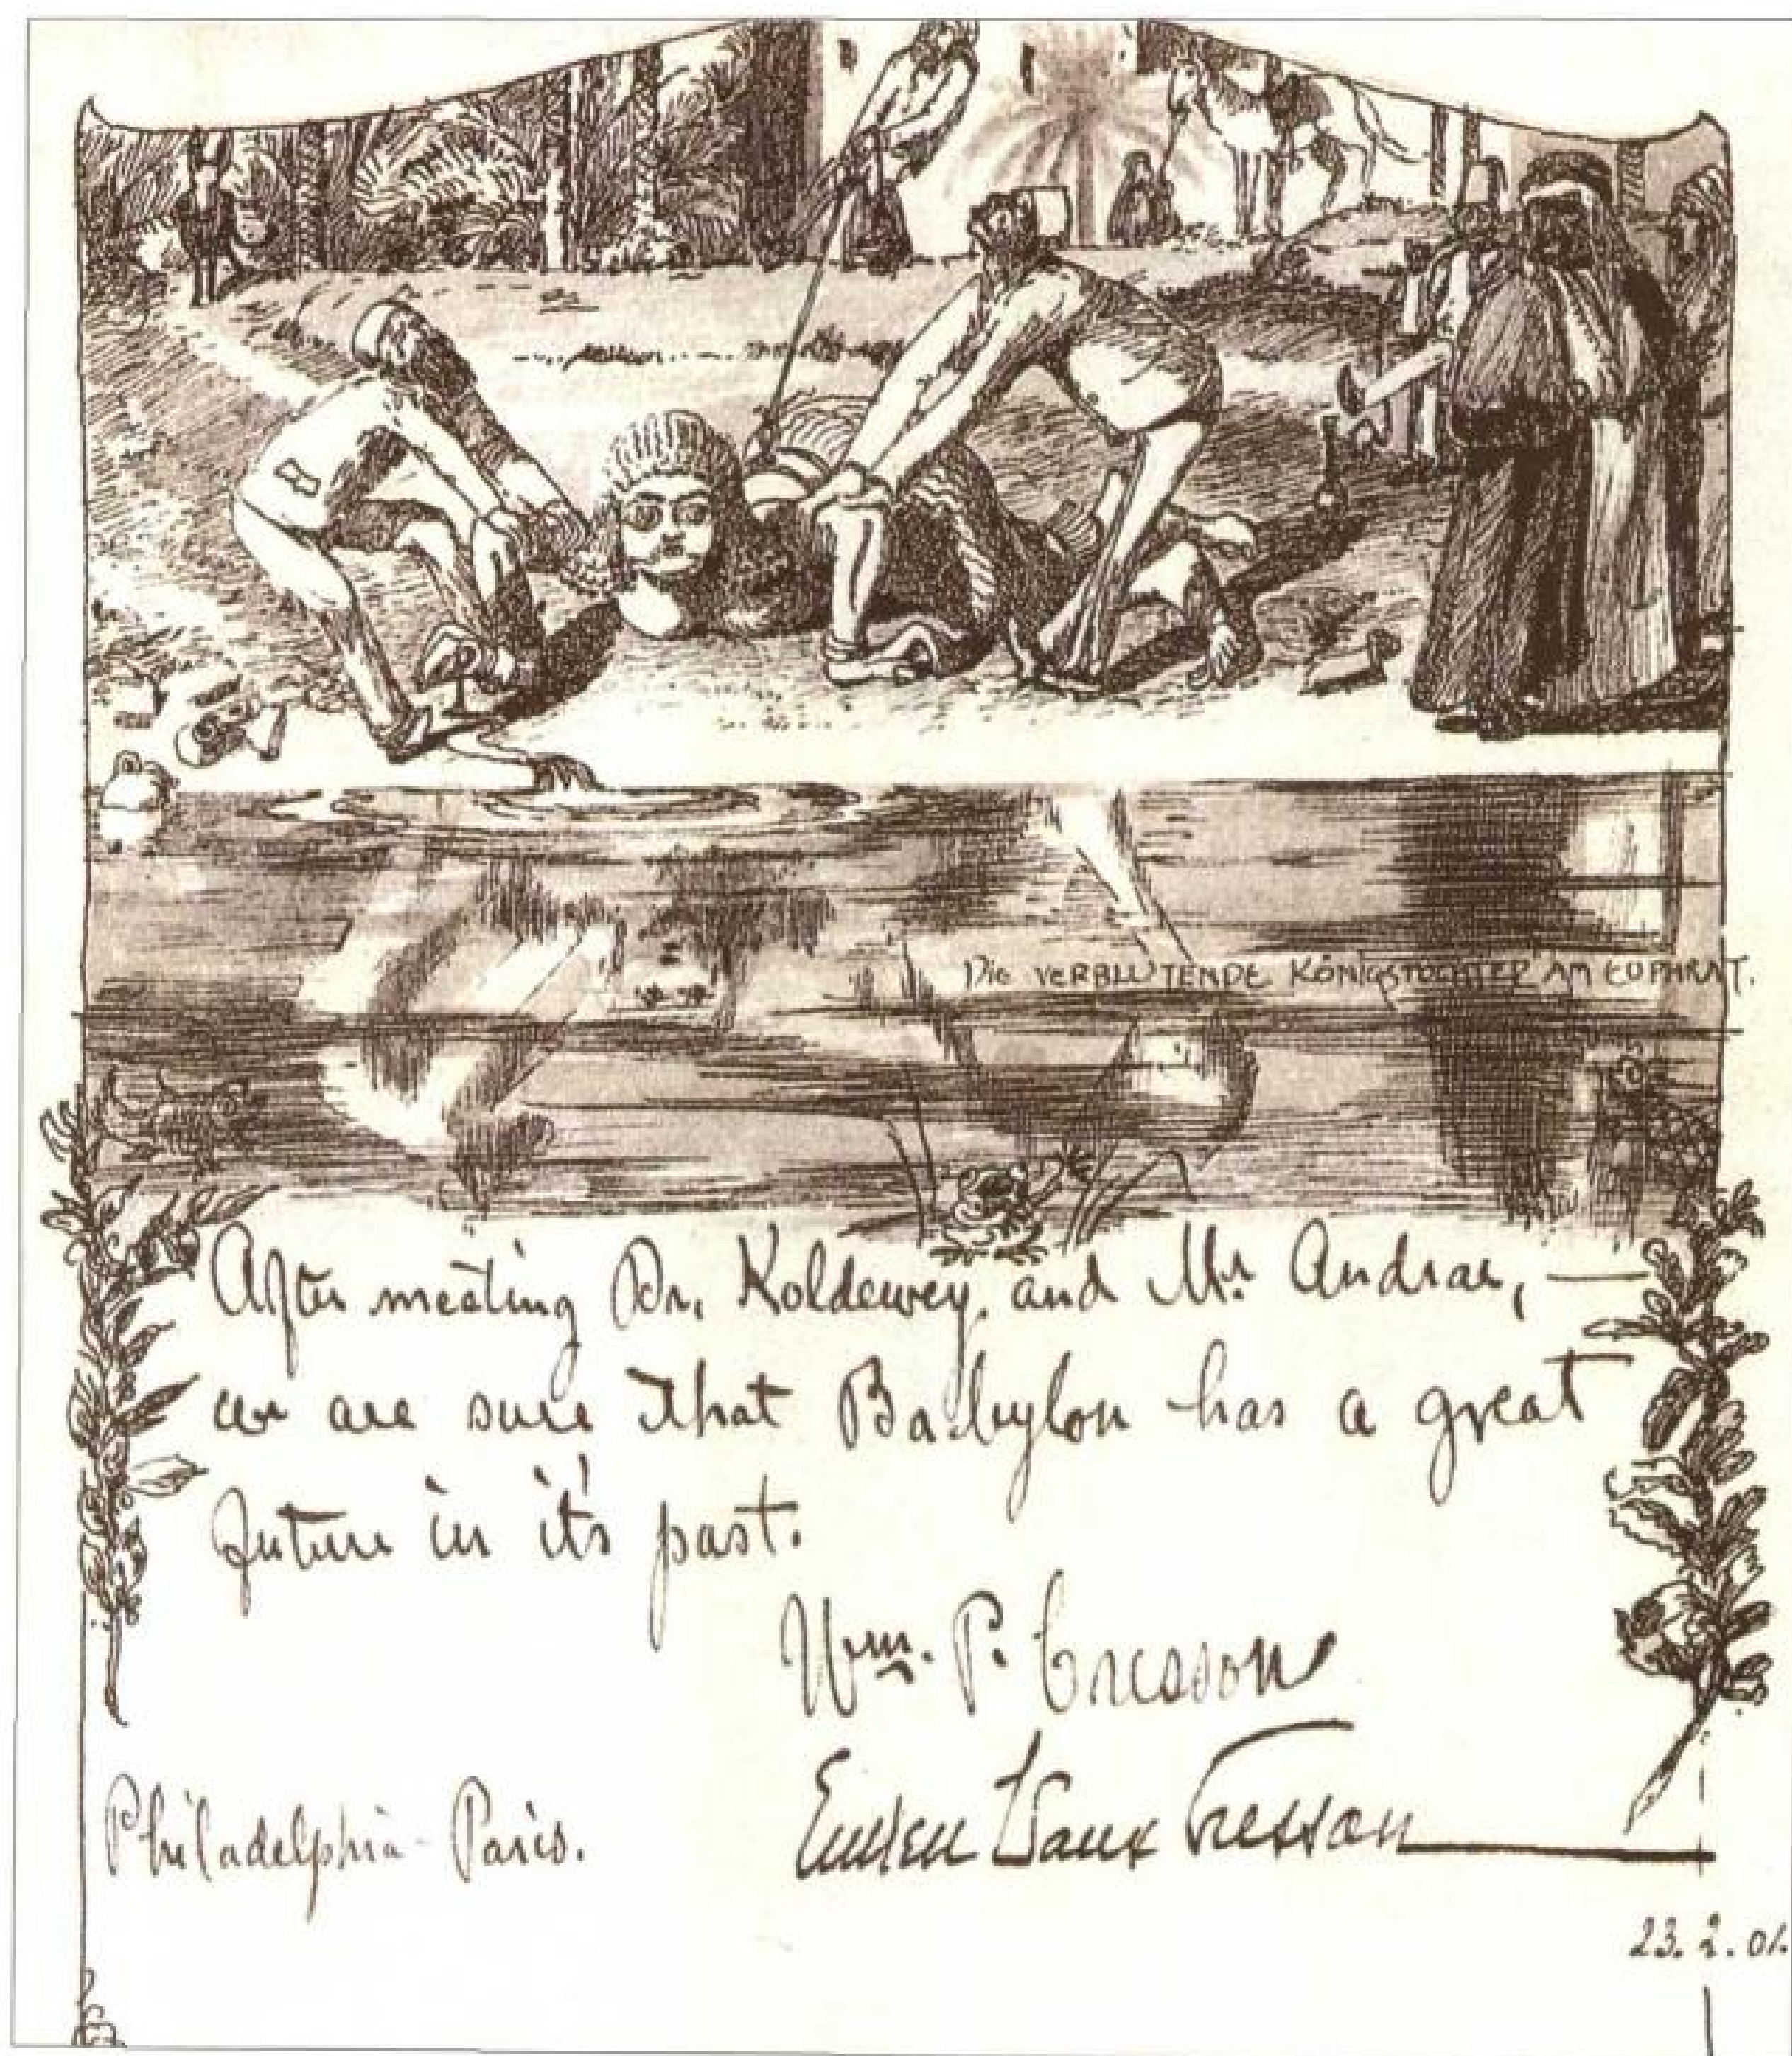 Die VERBLUTENDE KÖNIGSTOCHTER AM EUPHRAT.
After meeting Dr. Koldewey, and Mr. Andrae, —
we are sure that Babylon has a great
future in it's past.
Wm. P. Cresson
Vaux Cresson
Philadelphia - Paris.
23. 2. 01.